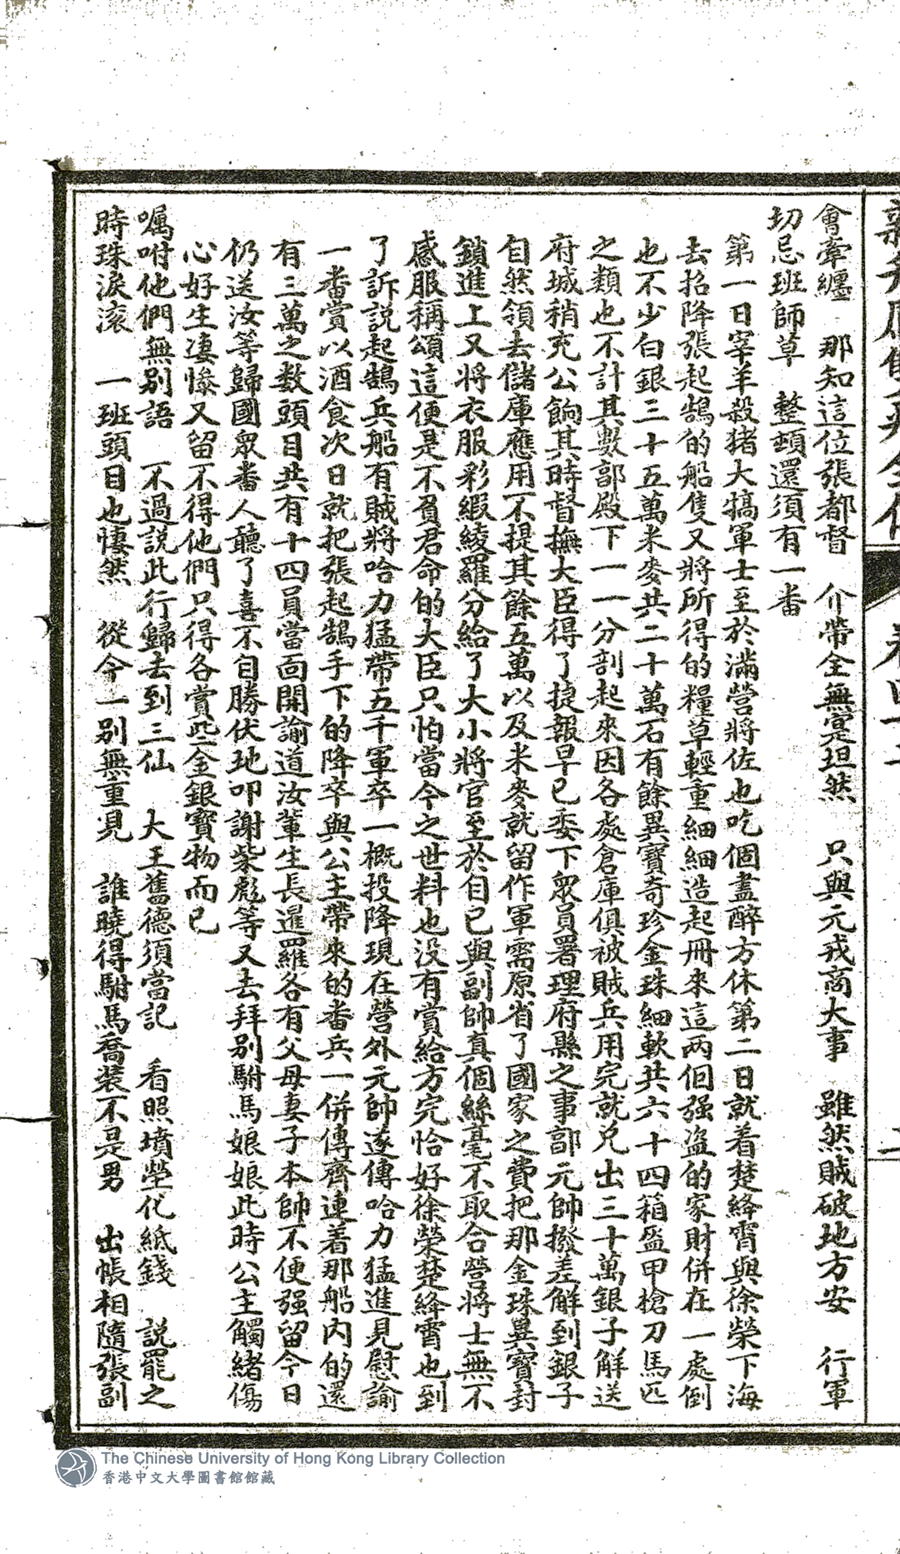 會牽纏　那知這位張都督　介帶全無寔坦然　只與元戎商大事　雖然賊破地方安　行軍
切忌班師草　整頓還須有一畨
第一日宰羊殺猪大犒軍士至於滿營將佐也吃個盡醉方休第二日就着楚絳霄與徐榮下海
去招降張起鵠的船隻又將所得的糧草輕重細細造起冊來這兩個强盗的家財併在一處倒
也不少白銀三十五萬米麥共二十萬石有餘異寶奇珍金珠細軟共六十四箱盔甲槍刀馬匹
之類也不計其數郭殿下一一分剖起來因各處倉庫俱被賊兵用完就兑出三十萬銀子解送
府城稍充公餉其時督撫大臣得了捷報早已委下衆員署理府縣之事郭元帥撥差解到銀子
自然領去儲庫應用不提其餘五萬以及米麥就留作軍需原省了國家之費把那金珠異寶封
鎖進上又將衣服彩緞綾羅分給了大小將官至於自己與副帥真個絲毫不取合營將士無不
感服稱頌這便是不負君命的大臣只怕當今之世料也没有賞給方完恰好徐榮楚絳霄也到
了訴説起鵠兵船有賊將哈力猛帶五千軍卒一概投降現在營外元帥遂傳哈力猛進見慰諭
一畨賞以酒食次日就把張起鵠手下的降卒與公主帶來的畨兵一併傳齊連着那船内的還
有三萬之数頭目共有十四員當面開諭道汝輩生長暹羅各有父母妻子本帥不便强留今日
仍送汝等歸國眾畨人聽了喜不自勝伏地叩謝柴彪等又去拜别駙馬娘娘此時公主觸緒傷
心好生凄慘又留不得他們只得各賞些金銀寳物而已
囑咐他們無别語　不過説此行歸去到三仙　大王舊德須當記　看照墳塋化紙錢　説罷之
時珠淚滚　一班頭目也悽然　從今一别無重見　誰曉得駙馬喬裝不是男　出帳相隨張副
The Chinese University of Hong Kong Library Collection
香港中文大學圖書館館藏